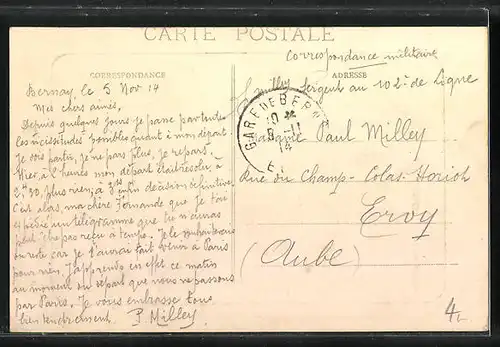 CARTE POSTALE
Correspondance militaire
CORRESPONDANCE
ADRESSE
Bernay, le 5 Nov 14
Mes chers aimés,
Depuis quelques jours je passe par toutes
les nécessités possibles quant à mon départ.
Je dois partir, je ne pars plus, je repars.
Hier, à 2 heures mon départ était résolu, à
2h30, plus rien; à 3h enfin décision définitive.
C'est alors, ma chère Fernande que je t'ai
expédié un télégramme que tu n'auras
peut-être pas reçu à temps. Je le souhaiterais
du reste car je t'aurai fait venir à Paris
pour rien, j'apprends en effet ce matin
au moment du départ que nous ne passons
par Paris. Je vous embrasse tous
bien tendrement. P Milley
Milley Sergent au 102e de Ligne
GARE DE BERNAY
10
5-11
14
Madame Paul Milley
Rue du Champ-Colas-Horiot
Ervy
(Aube)
4